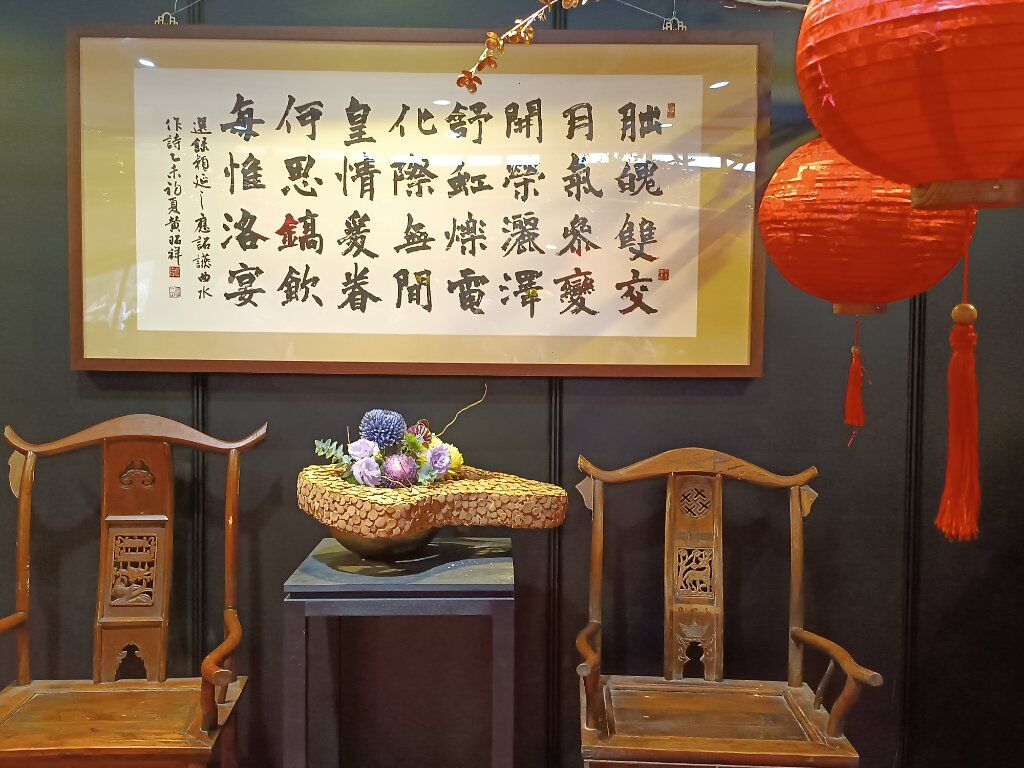 朏魄雙交
月氣參變
開榮灑澤
舒虹爍電
化際無間
皇情爰眷
伊思鎬飲
每惟洛宴
選錄顏延之應詔讌曲水
作詩乙未初夏黃昭祥